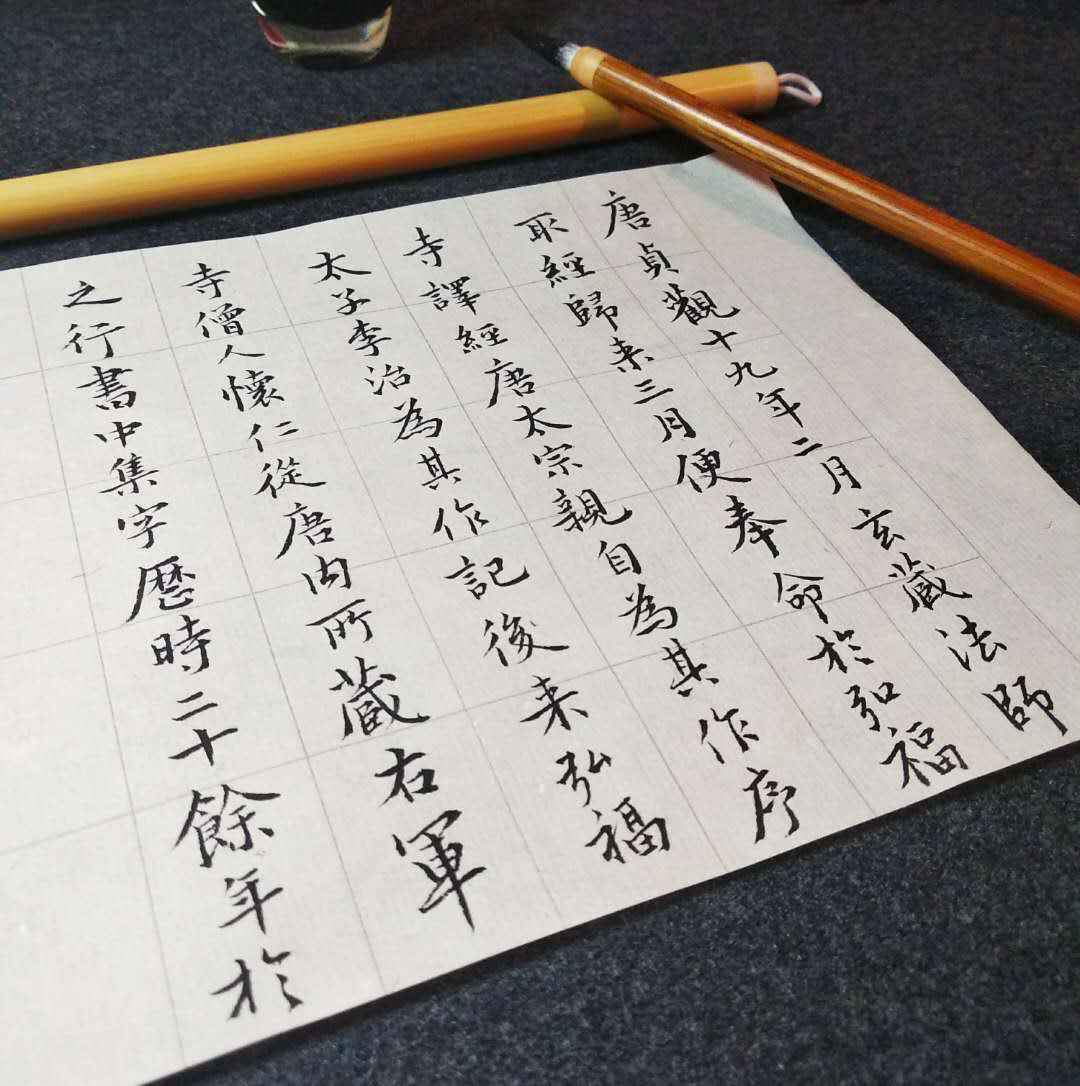 唐貞觀十九年二月玄藏法師
取經歸来三月便奉命於弘福
寺譯經唐太宗親自為其作序
太子李治為其作記後来弘福
寺僧人懷仁從唐内所蔵右軍
之行書中集字歷時二十餘年於